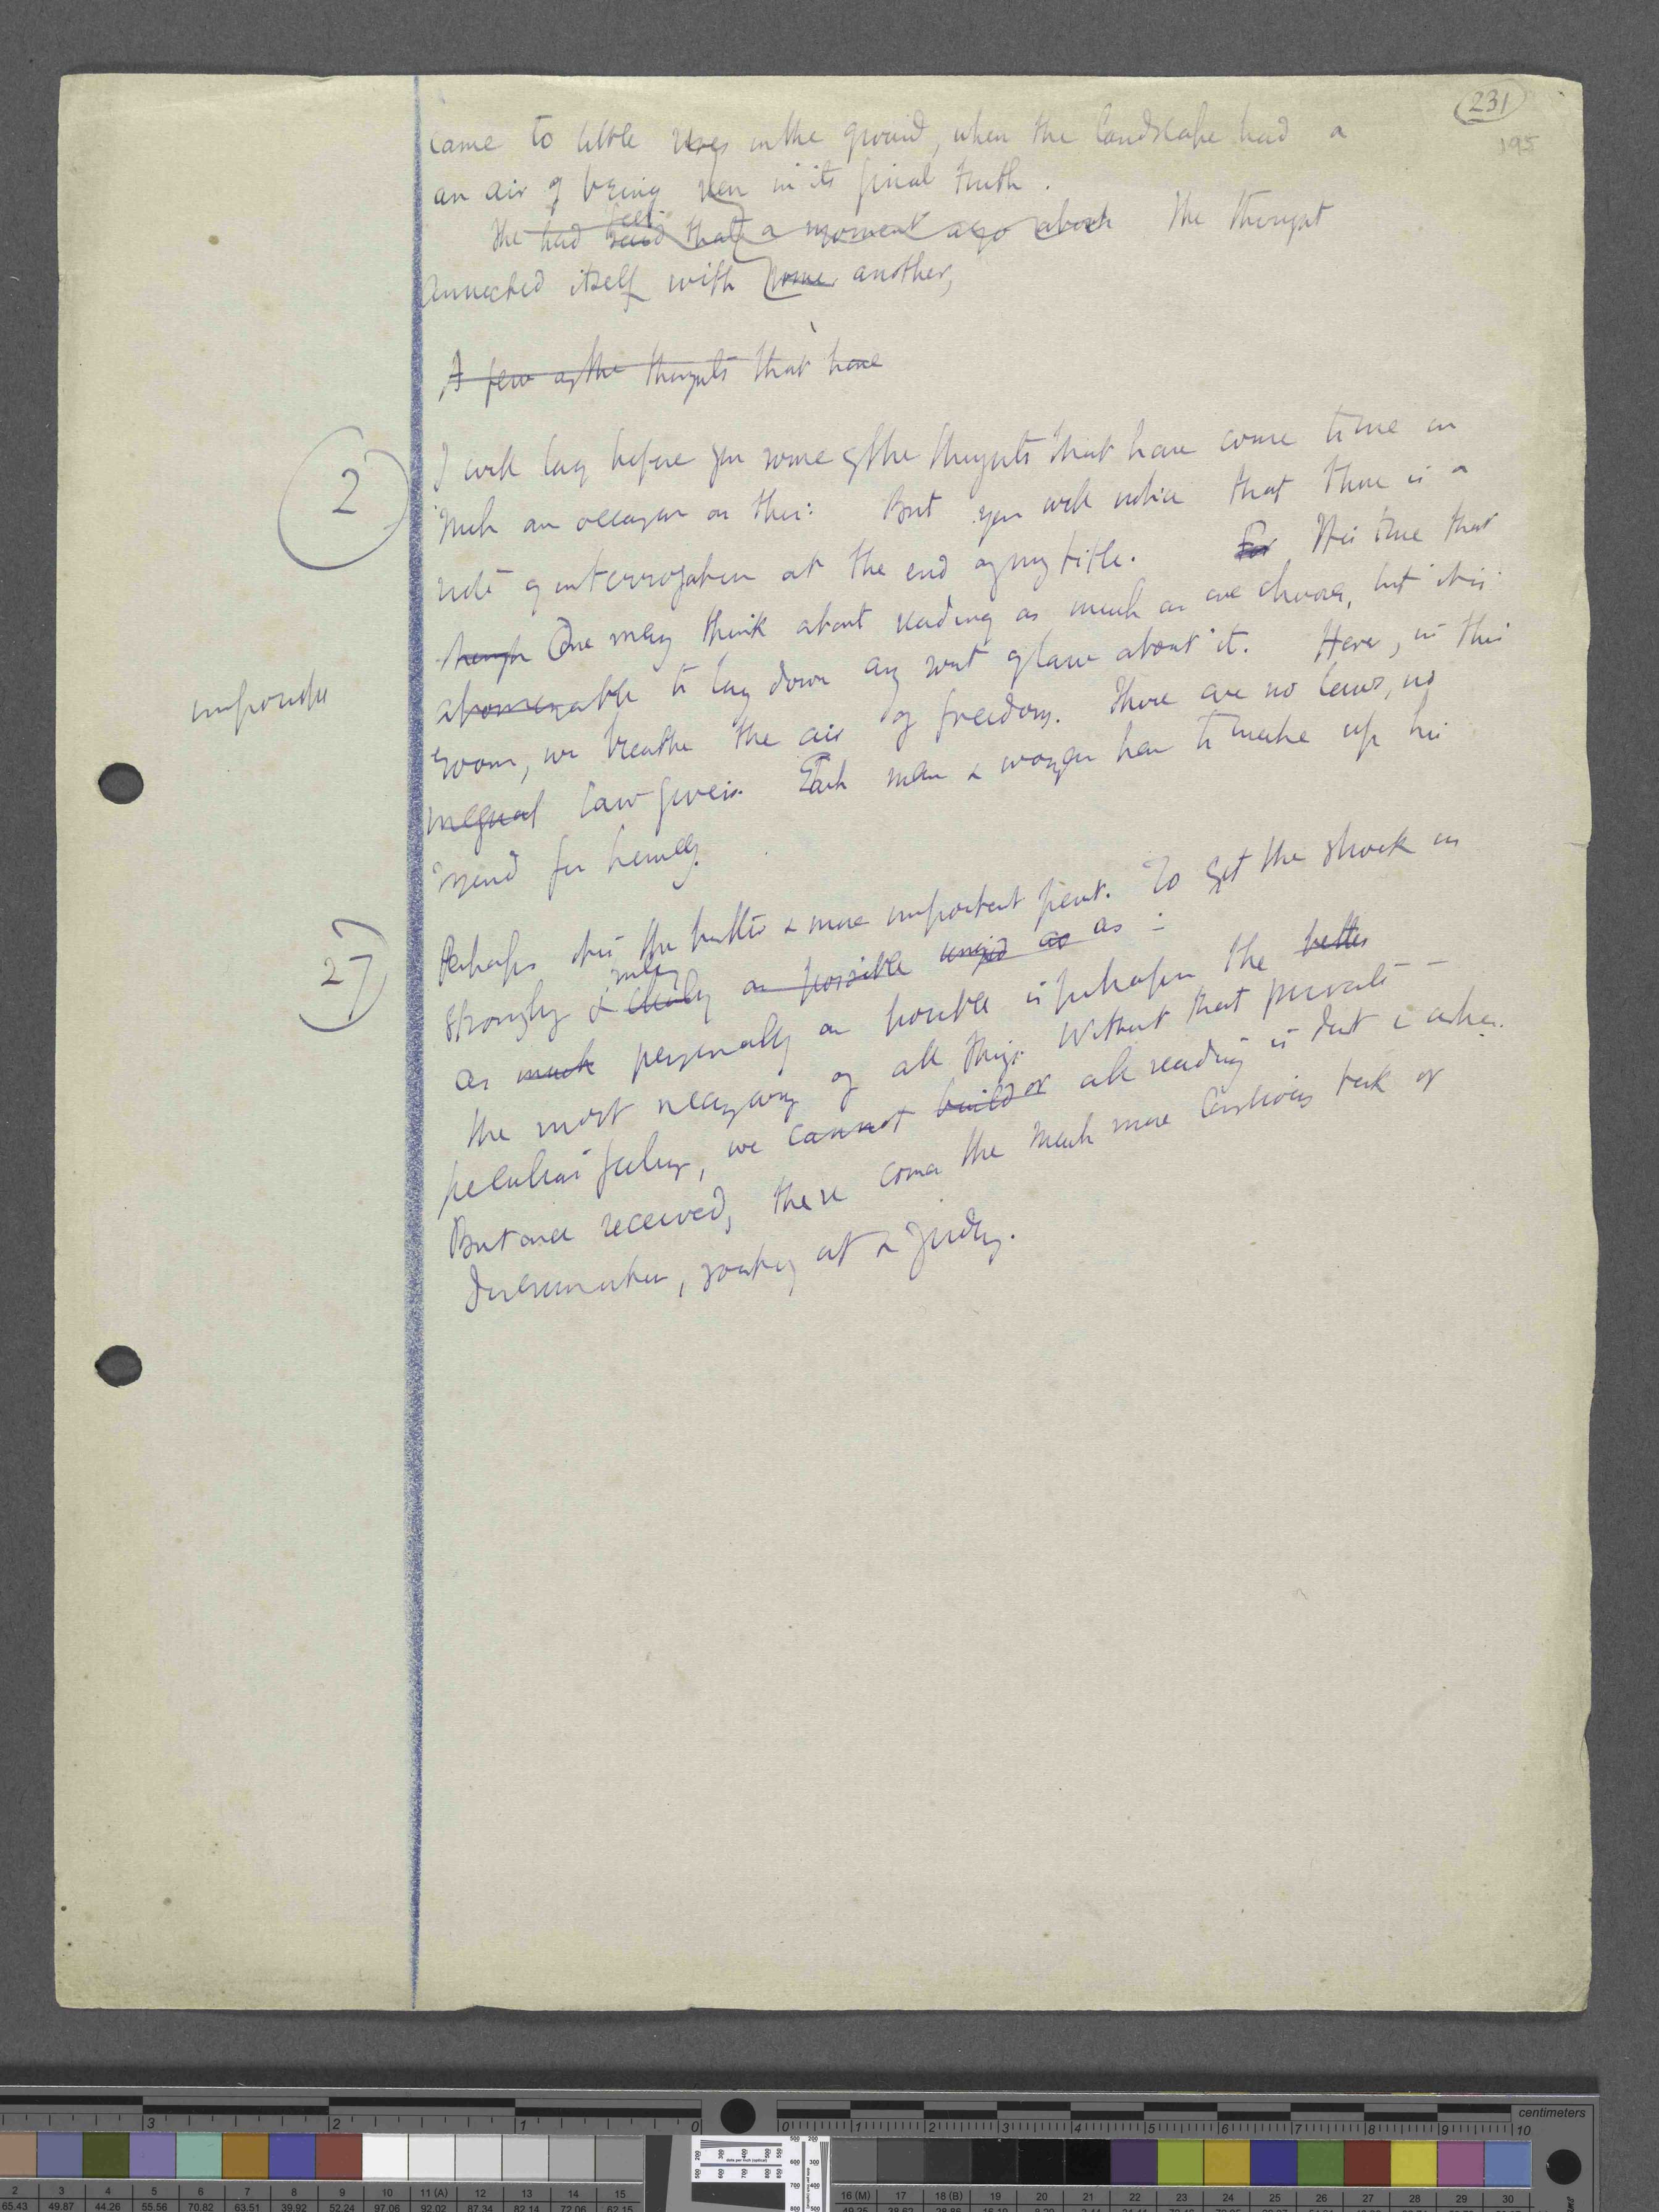 231
195
came to little rises in the ground, when the landscape had a
an air of being seen in its final truth.
felt
She had said that a moment ago about The thought
connected itself with some another,
A few of the thoughts that have
2
I will lay before you some of the thoughts that have come to me on
such an occasion as this: But you will notice that there is a
note of interrogation at the end of my title. For It is true that
though One may think about reading as much as one chooses, but it is
impossible
abominable to lay down any sort of law about it. Here, in this
room, we breathe the air of freedom. There are no laws, no
law givers. Each man & woman has to make up his
mind for himself.
27
Perhaps it is the better & more important part. To get the shock as
strongly & as possible as as
as much personally as possible is perhaps the better
the most necessary of all things. Without that private
peculiar feeling, we cannot build or all reading is dust & ashes.
But once received, there comes the much more laborious task of
discrimination, sorting out & judging.
centimeters